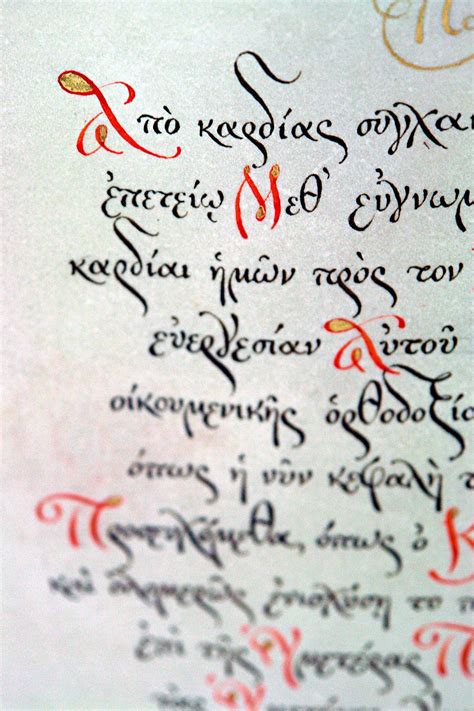 Ἀπὸ καρδίας συγχαι
ἐπετείῳ Μεθ' εὐγνωμ
καρδίαι ἡμῶν πρὸς τον
εὐεργεσίαν Αὐτοῦ
οἰκουμενικῆς ὀρθοδοξία
ὅπως ἡ νῦν κεφαλὴ τ
ὅπως ὁ
καὶ ἐπιολύση το
ἐπὶ τῆς Ὑμετέρας